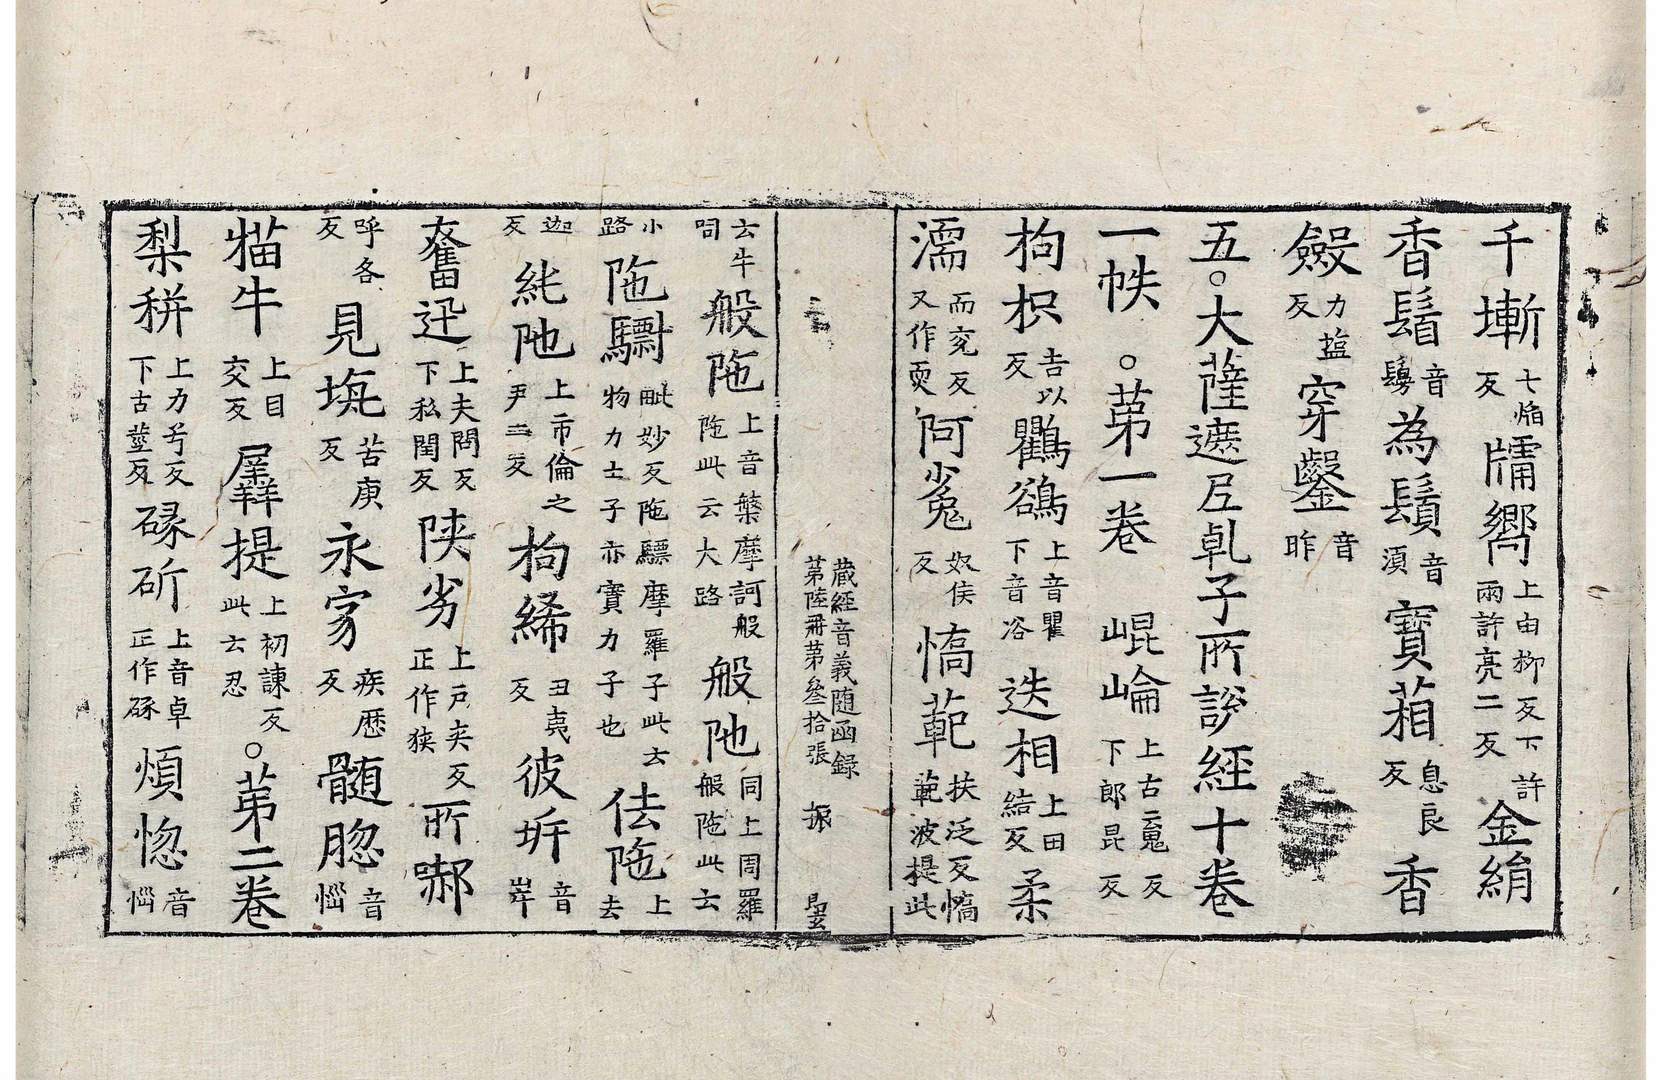 千塹七焰反牖嚮上由柳反下許兩許亮二反金絹
香鬘音為鬚音須寶葙息良反香
籢力塩反穿鑿音昨
五○大薩遮尼乹子所說經十卷
一帙○第一卷崐崘上古䰟反下郎昆反
枸枳吉以反鸜鵒上音瞿下音浴迭相上田結反柔
濡而兖反又作耎阿㝹奴侯反憍範扶泛反憍範波提此
云牛呞般陁上音鉢摩訶般陁此云大路般阤同上周羅般陁此云
小路陁驃毗妙反陁驃摩羅子此云物力士子亦寶力子也佉陁上去
迦反純阤上市倫之尹二反枸絺丑夷反彼㟁音岸
奮迅上夫問反下私閏反陝劣上戶夾反正作狹所㗉
呼各反見塊苦庚反永家疾歴反髓𦛁音惱
猫牛上目交反羼提上初諫反此云忍○第二卷
梨秼上力兮反下古莖反㓸斫上音卓正作㓸煩惚音惱
藏經音義随函録
第陸冊第叄拾張